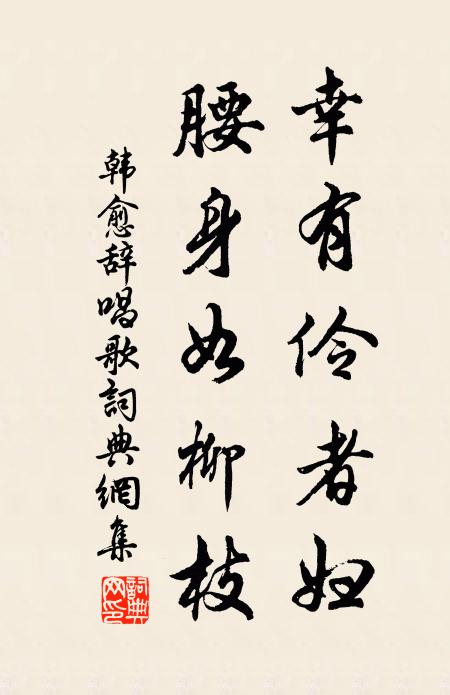 幸有伶者妇
腰身如柳枝
韩愈辞唱歌詞典網集
詞典网印